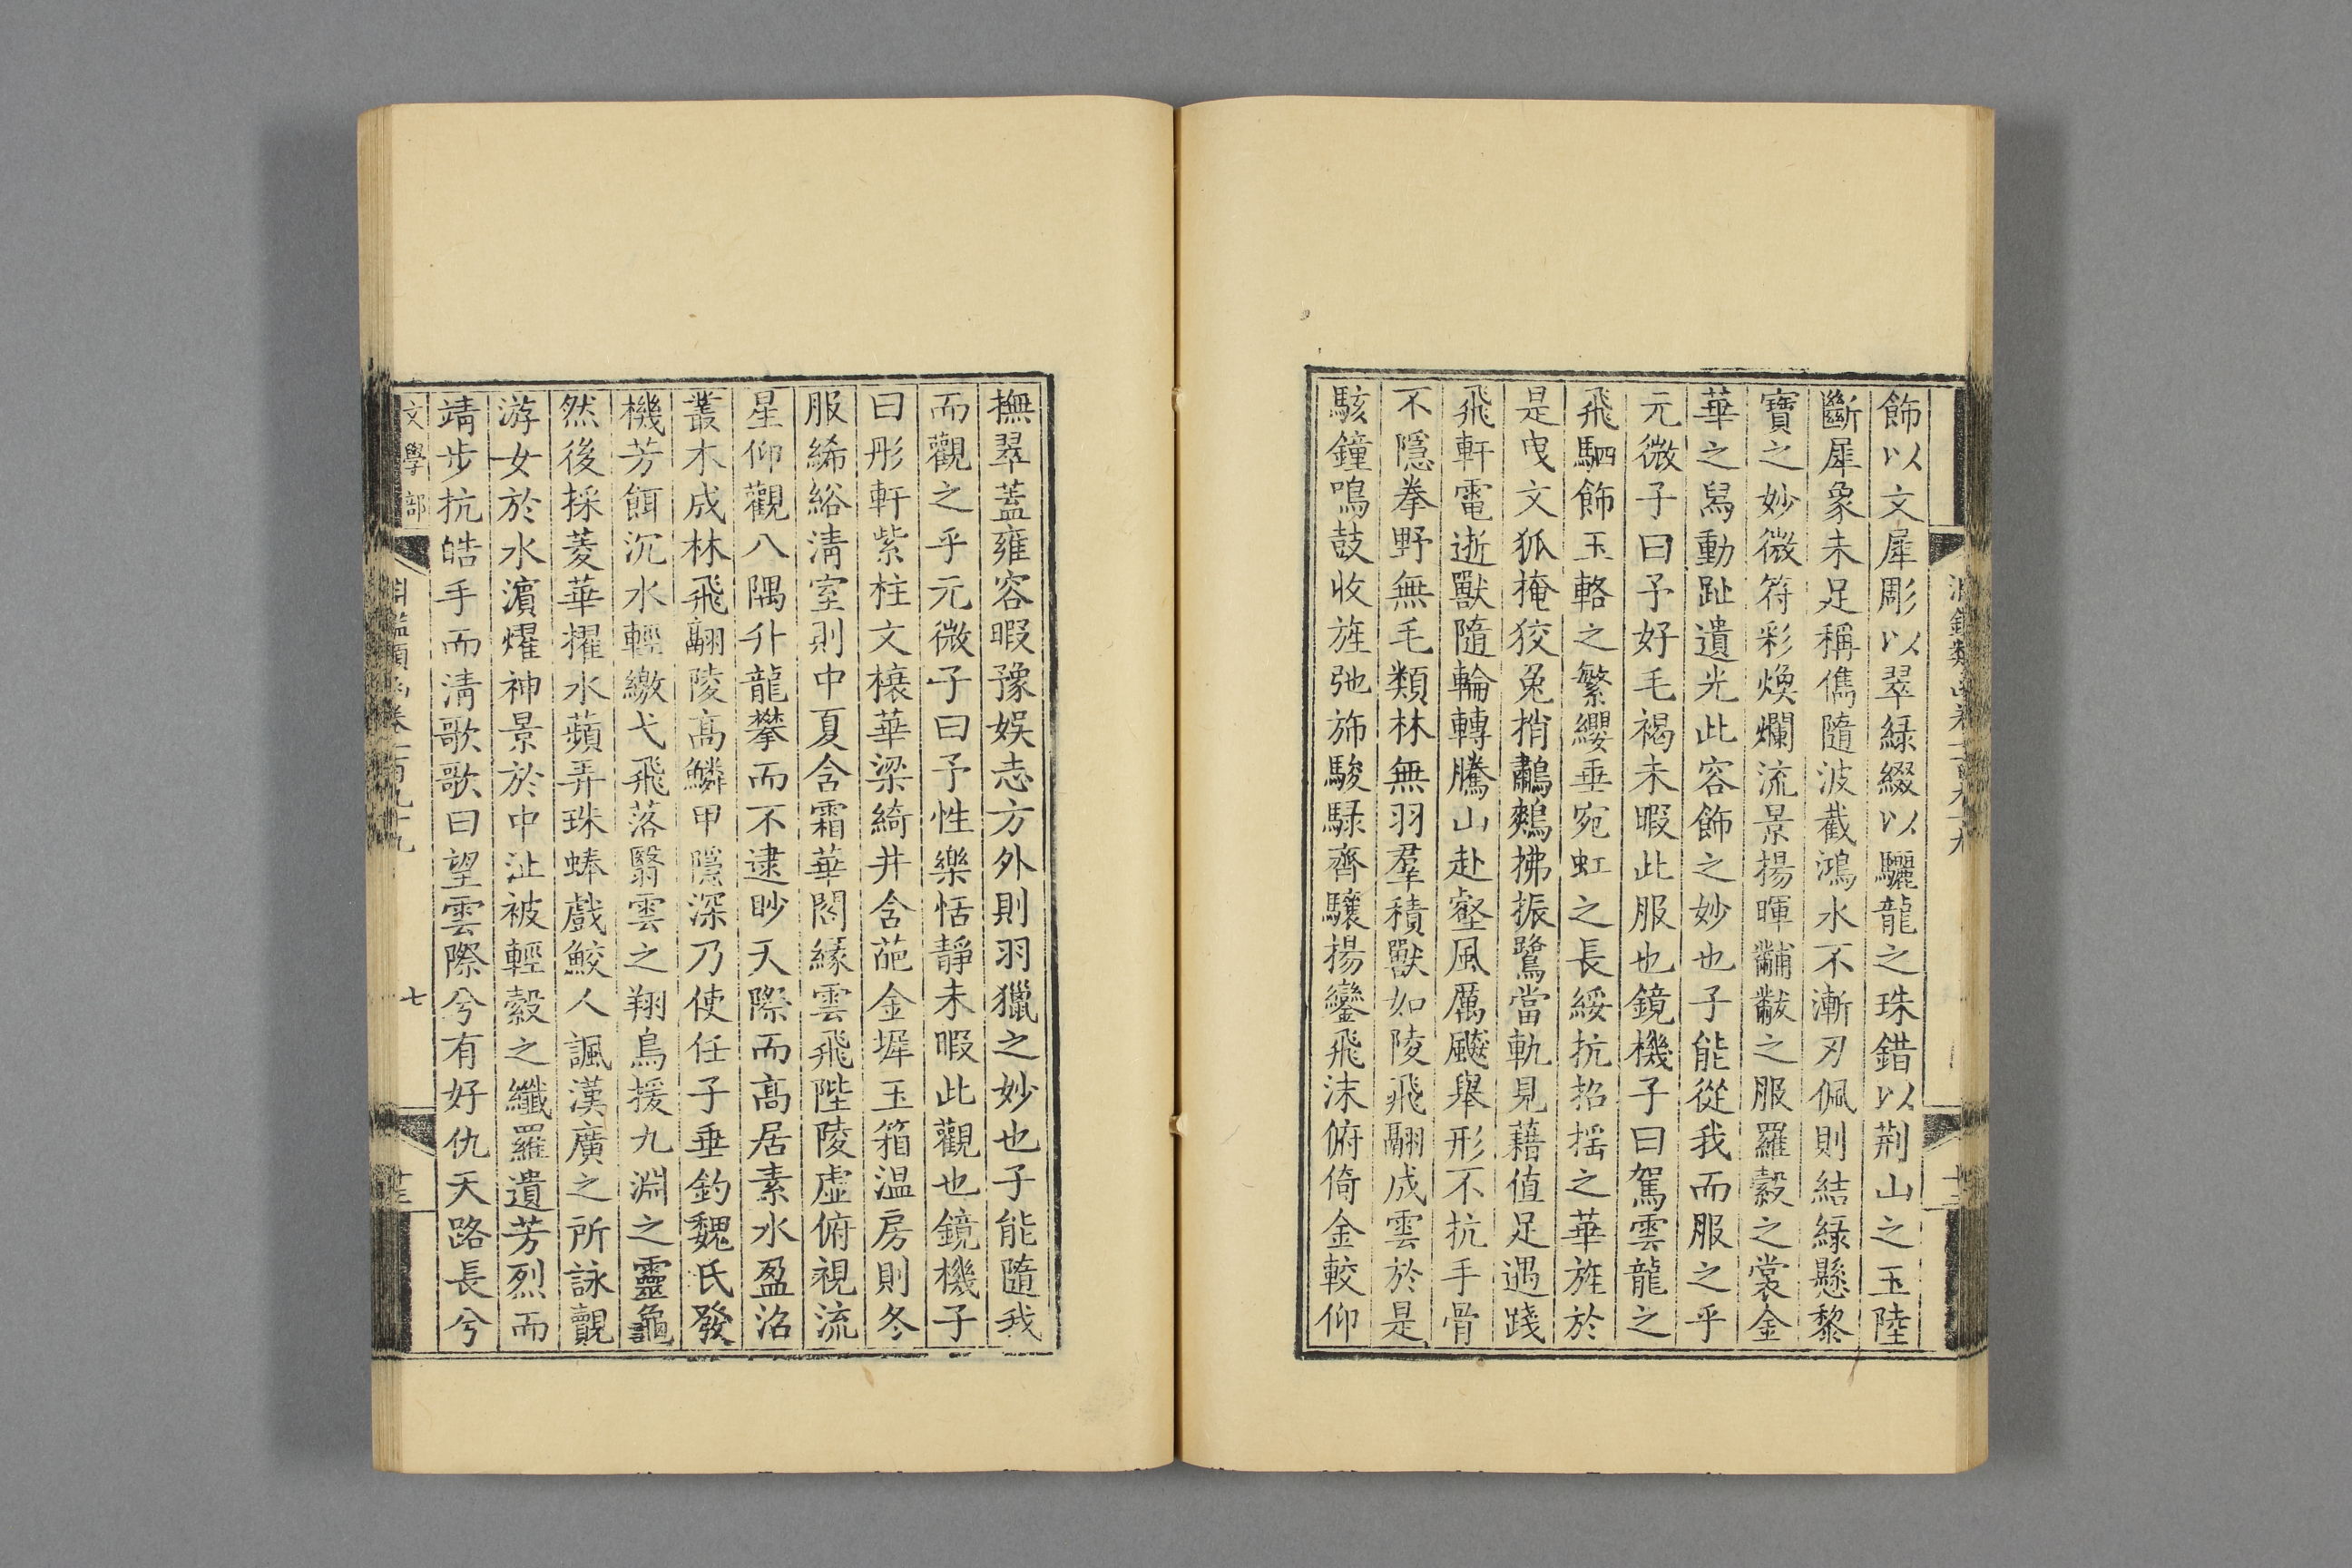 飾以文犀彫以翠緑綴以驪龍之珠錯以荆山之玉陸
斷犀象未足稱儁隨波截鴻水不漸刃佩則結緑懸黎
寶之妙微符彩煥爛流景揚暉黼黻之服羅縠之裳金
華之舄動趾遺光此容飾之妙也子能從我而服之乎
元微子曰予好毛褐未暇此服也鏡機子曰駕雲龍之
飛駟飾玉輅之繁纓垂宛虹之長綏抗招揺之華旌於
是曳文狐掩狡兔捎鷫鷞拂振鷺當軌見藉值足遇踐
飛軒電逝獸隨輪轉騰山赴壑風厲飈舉形不抗手骨
不隱拳野無毛類林無羽羣積獸如陵飛翮成雲於是
駭鐘鳴鼓收旌弛斾駿騄齊驤揚鑾飛沫俯倚金較仰
撫翠蓋雍容暇豫娱志方外則羽獵之妙也子能隨我
而觀之乎元微子曰予性樂恬靜未暇此觀也鏡機子
曰彤軒紫柱文榱華梁綺井含葩金墀玉箱温房則冬
服絺綌清室則中夏含霜華閣緣雲飛陛陵虚俯視流
星仰觀八隅升龍攀而不逮眇天際而高居素水盈沼
叢木成林飛翮陵高鱗甲隱深乃使任子垂釣魏氏發
機芳餌沉水輕繳弋飛落翳雲之翔鳥援九淵之靈龜
然後採菱華擢水蘋弄珠蜯戲鮫人諷漢廣之所詠覿
游女於水濵燿神景於中沚被輕縠之纖羅遺芳烈而
靖步抗皓手而清歌歌曰望雲際兮有好仇天路長兮
文學部
淵鑑類函卷一百九十九
七